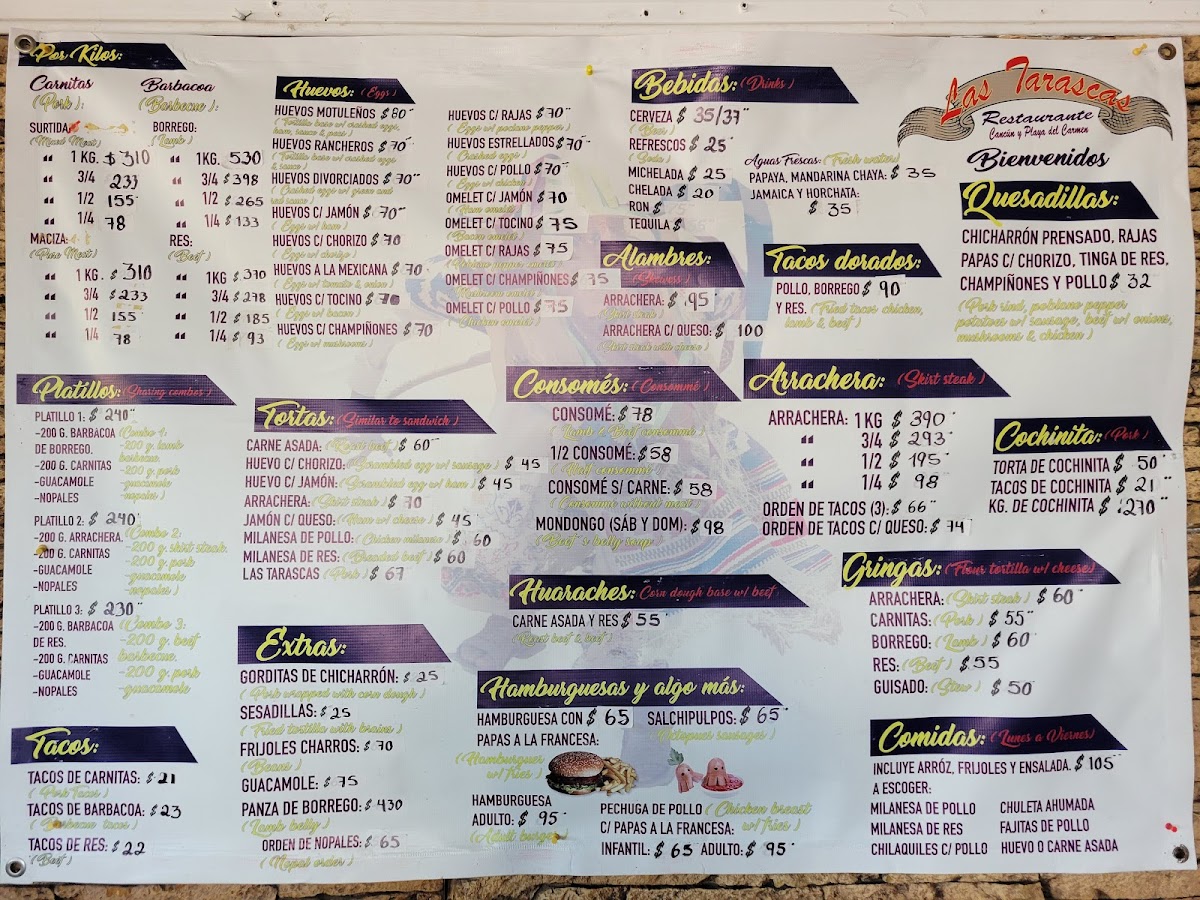 Por Kilos:
Carnitas
(Pork):
SURTIDA:
(Mixed Meat)
" 1 KG. $ 310
" 3/4 233
" 1/2 155
" 1/4 78
MACIZA:
(Pure Meat)
" 1 KG. $ 310
" 3/4 $ 233
" 1/2 155
" 1/4 78
Barbacoa
(Barbecue):
BORREGO:
(Lamb)
" 1KG. 530
" 3/4 $ 398
" 1/2 $ 265
" 1/4 $ 133
RES:
(Beef)
" 1KG $ 370
" 3/4 $ 278
" 1/2 $ 185
" 1/4 $ 93
Platillos: (Sharing combos)
PLATILLO 1: $ 240
-200 G. BARBACOA (Combo 1:
DE BORREGO. -200 g. lamb
barbecue.
-200 G. CARNITAS -200 g. pork
-GUACAMOLE -guacamole
-NOPALES -nopales)
PLATILLO 2: $ 240
-200 G. ARRACHERA. (Combo 2:
-200 G. CARNITAS -200 g. skirt steak.
-200 g. pork
-GUACAMOLE -guacamole
-NOPALES -nopales)
PLATILLO 3: $ 230
-200 G. BARBACOA (Combo 3:
DE RES. -200 g. beef
barbecue.
-200 G. CARNITAS -200 g. pork
-GUACAMOLE -guacamole
-NOPALES
Tacos:
TACOS DE CARNITAS: $ 21
(Pork Tacos)
TACOS DE BARBACOA: $ 23
(Barbecue tacos)
TACOS DE RES: $ 22
(Beef)
Huevos: (Eggs)
HUEVOS MOTULEÑOS $ 80
(Tortilla base w/ crashed eggs,
ham, sauce & peas)
HUEVOS RANCHEROS $ 70
(Tortilla base w/ crashed eggs
& sauce)
HUEVOS DIVORCIADOS $ 70
(Crashed eggs w/ green and
red sauce)
HUEVOS C/ JAMÓN $ 70
(Eggs w/ ham)
HUEVOS C/ CHORIZO $ 70
(Eggs w/ chorizo)
HUEVOS A LA MEXICANA $ 70
(Eggs w/ tomato & onion)
HUEVOS C/ TOCINO $ 70
(Eggs w/ bacon)
HUEVOS C/ CHAMPIÑONES $ 70
(Eggs w/ mushrooms)
HUEVOS C/ RAJAS $ 70
(Eggs w/ poclano pepper)
HUEVOS ESTRELLADOS $ 70
(Crashed eggs)
HUEVOS C/ POLLO $ 70
(Eggs w/ chicken)
OMELET C/ JAMÓN $ 70
(Ham omelet)
OMELET C/ TOCINO $ 75
(Bacon omelet)
OMELET C/ RAJAS $ 75
OMELET C/ CHAMPIÑONES $ 75
(Mushroom omelet)
OMELET C/ POLLO $ 75
(Chicken omelet)
Tortas: (Similar to sandwich)
CARNE ASADA: (Roast beef) $ 60
HUEVO C/ CHORIZO: (Scrambled egg w/ sausage) $ 45
HUEVO C/ JAMÓN: (Scrambled egg w/ ham) $ 45
ARRACHERA: (Skirt steak) $ 70
JAMÓN C/ QUESO: (Ham w/ cheese) $ 45
MILANESA DE POLLO: (Chicken milanese) $ 60
MILANESA DE RES: (Breaded beef) $ 60
LAS TARASCAS (Pork) $ 67
Extras:
GORDITAS DE CHICHARRÓN: $ 25
(Pork wrapped with corn dough)
SESADILLAS: $ 25
(Fried tortilla with brains)
FRIJOLES CHARROS: $ 70
(Beans)
GUACAMOLE: $ 75
PANZA DE BORREGO: $ 430
(Lamb belly)
ORDEN DE NOPALES: $ 65
(Nopal order)
Bebidas: (Drinks)
CERVEZA $ 35/37
(Beer)
REFRESCOS $ 25
(Soda)
MICHELADA $ 25
CHELADA $ 20
RON $
TEQUILA $
Aguas Frescas: (Fresh water)
PAPAYA, MANDARINA CHAYA: $ 35
JAMAICA Y HORCHATA:
$ 35
Alambres:
(Skewers)
ARRACHERA: $ 95
(Skirt steak)
ARRACHERA C/ QUESO: $ 100
(Skirt steak with cheese)
Tacos dorados:
POLLO, BORREGO $ 90
Y RES. (Fried tacos chicken,
lamb & beef)
Consomés: (Consommé)
CONSOMÉ: $ 78
(Lamb & Beef consommé)
1/2 CONSOMÉ: $ 58
(Half consommé)
CONSOMÉ S/ CARNE: $ 58
(Consommé without meat)
MONDONGO (SÁB Y DOM): $ 98
(Beef's belly soup)
Huaraches: Corn dough base w/ beef)
CARNE ASADA Y RES $ 55
(Roast beef & beef)
Hamburguesas y algo más:
HAMBURGUESA CON $ 65
PAPAS A LA FRANCESA:
(Hamburguer
w/ fries)
SALCHIPULPOS: $ 65
(Octopuses sausages)
HAMBURGUESA
ADULTO: $ 95
(Adult burger)
PECHUGA DE POLLO (Chicken breast
C/ PAPAS A LA FRANCESA: w/ fries)
INFANTIL: $ 65 ADULTO: $ 95
Las Tarascas
Restaurante
Cancún y Playa del Carmen
Bienvenidos
Quesadillas:
CHICHARRÓN PRENSADO, RAJAS
PAPAS C/ CHORIZO, TINGA DE RES,
CHAMPIÑONES Y POLLO $ 32
(Pork rind, poblano pepper
potatoes w/ sausage, beef w/ onions,
mushrooms & chicken)
Arrachera: (Skirt steak)
ARRACHERA: 1 KG $ 390
" 3/4 $ 293
" 1/2 $ 195
" 1/4 $ 98
ORDEN DE TACOS (3): $ 66
ORDEN DE TACOS C/ QUESO: $ 74
Cochinita: (Pork)
TORTA DE COCHINITA $ 50
TACOS DE COCHINITA $ 21
KG. DE COCHINITA $ 270
Gringas: (Flour tortilla w/ cheese)
ARRACHERA: (Skirt steak) $ 60
CARNITAS: (Pork) $ 55
BORREGO: (Lamb) $ 60
RES: (Beef) $ 55
GUISADO: (Stew) $ 50
Comidas: (Lunes a Viernes)
INCLUYE ARRÓZ, FRIJOLES Y ENSALADA. $ 105
A ESCOGER:
MILANESA DE POLLO CHULETA AHUMADA
MILANESA DE RES FAJITAS DE POLLO
CHILAQUILES C/ POLLO HUEVO O CARNE ASADA